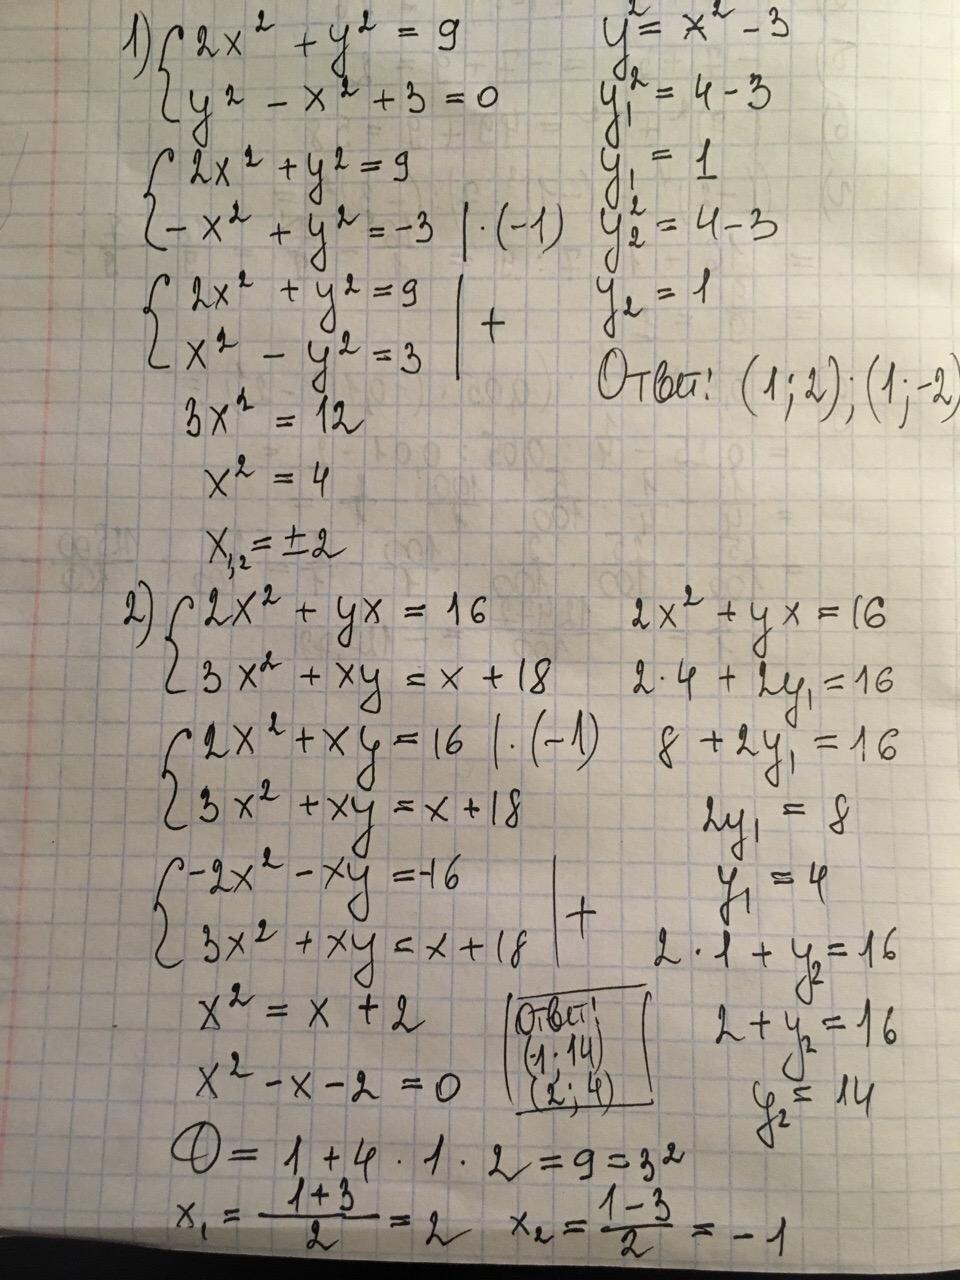 1) { 2x² + y² = 9
y² - x² + 3 = 0
{ 2x² + y² = 9
- x² + y² = -3 | · (-1)
{ 2x² + y² = 9
x² - y² = 3 | +
3x² = 12
x² = 4
x₁,₂ = ±2
y² = x² - 3
y₁² = 4 - 3
y₁ = 1
y₂² = 4 - 3
y₂ = 1
Ответ: (1; 2); (1; -2)
2) { 2x² + yx = 16
3x² + xy = x + 18
{ 2x² + xy = 16 | · (-1)
3x² + xy = x + 18
{ -2x² - xy = -16
3x² + xy = x + 18 | +
x² = x + 2
x² - x - 2 = 0
D = 1 + 4 · 1 · 2 = 9 = 3²
x₁ = (1 + 3)/2 = 2 x₂ = (1 - 3)/2 = - 1
2x² + yx = 16
2 · 4 + 2y₁ = 16
8 + 2y₁ = 16
2y₁ = 8
y₁ = 4
2 · 1 + y₂ = 16
2 + y₂ = 16
y₂ = 14
Ответ:
(-1; 14)
(2; 4)